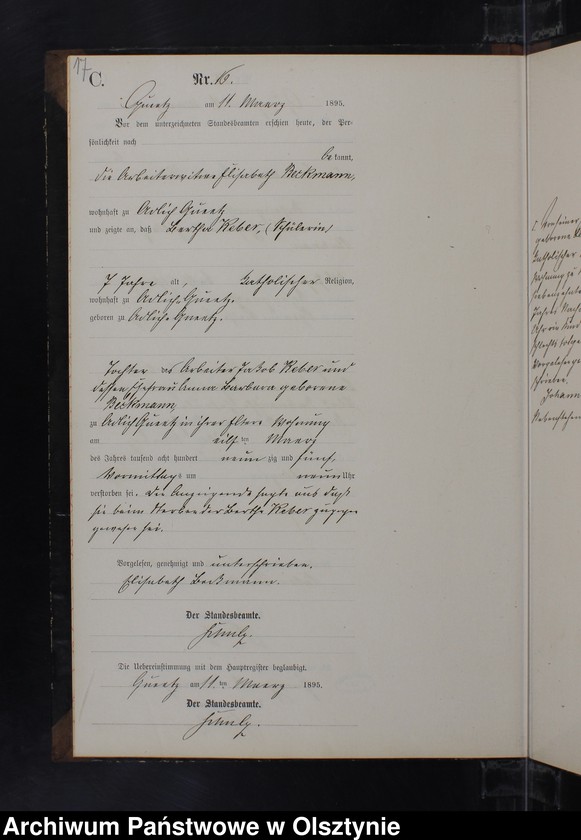 17
C.
Nr. 16.
Gueetz am 11. Maerz 1895.
Vor dem unterzeichneten Standesbeamten erschien heute, der Per-
sönlichkeit nach
bekannt,
die Arbeiterwitwe Elisabeth Beckmann,
wohnhaft zu Adlich Gueetz
und zeigte an, daß Bertha Reber, (Schülerin)
7 Jahre alt, katholischer Religion,
wohnhaft zu Adlich Gueetz.
geboren zu Adlich Gueetz.
Tochter des Arbeiter Jakob Reber und
dessen Ehefrau Anna Barbara geborene
Beckmann,
zu Adlich Gueetz in ihrer Eltern Wohnung
am eilf ten Maerz
des Jahres tausend acht hundert neun zig und fünf,
Vormittags um neun Uhr
verstorben sei. Die Anzeigende sagte aus daß
sie beim Sterben der Bertha Reber zugegen
gewesen sei.
Vorgelesen, genehmigt und unterschrieben.
Elisabeth Beckmann.
Der Standesbeamte.
Schulz.
Die Uebereinstimmung mit dem Hauptregister beglaubigt.
Gueetz am 11. ten Maerz 1895.
Der Standesbeamte.
Schulz.
geborene
katholischer
Johann
Archiwum Państwowe w Olsztynie